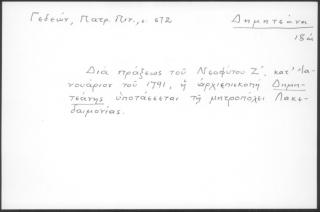 Γεδεών, Πατρ. Πιν., σ. 672
Δημητσάνα
18ᾳ
Διὰ πράξεως τοῦ Νεοφύτου Ζ΄, κατ' Ἰα-
νουάριον τοῦ 1791, ἡ ἀρχιεπισκοπὴ Δημη-
τσάνης ὑποτάσσεται τῇ μητροπόλει Λακε-
δαιμονίας.